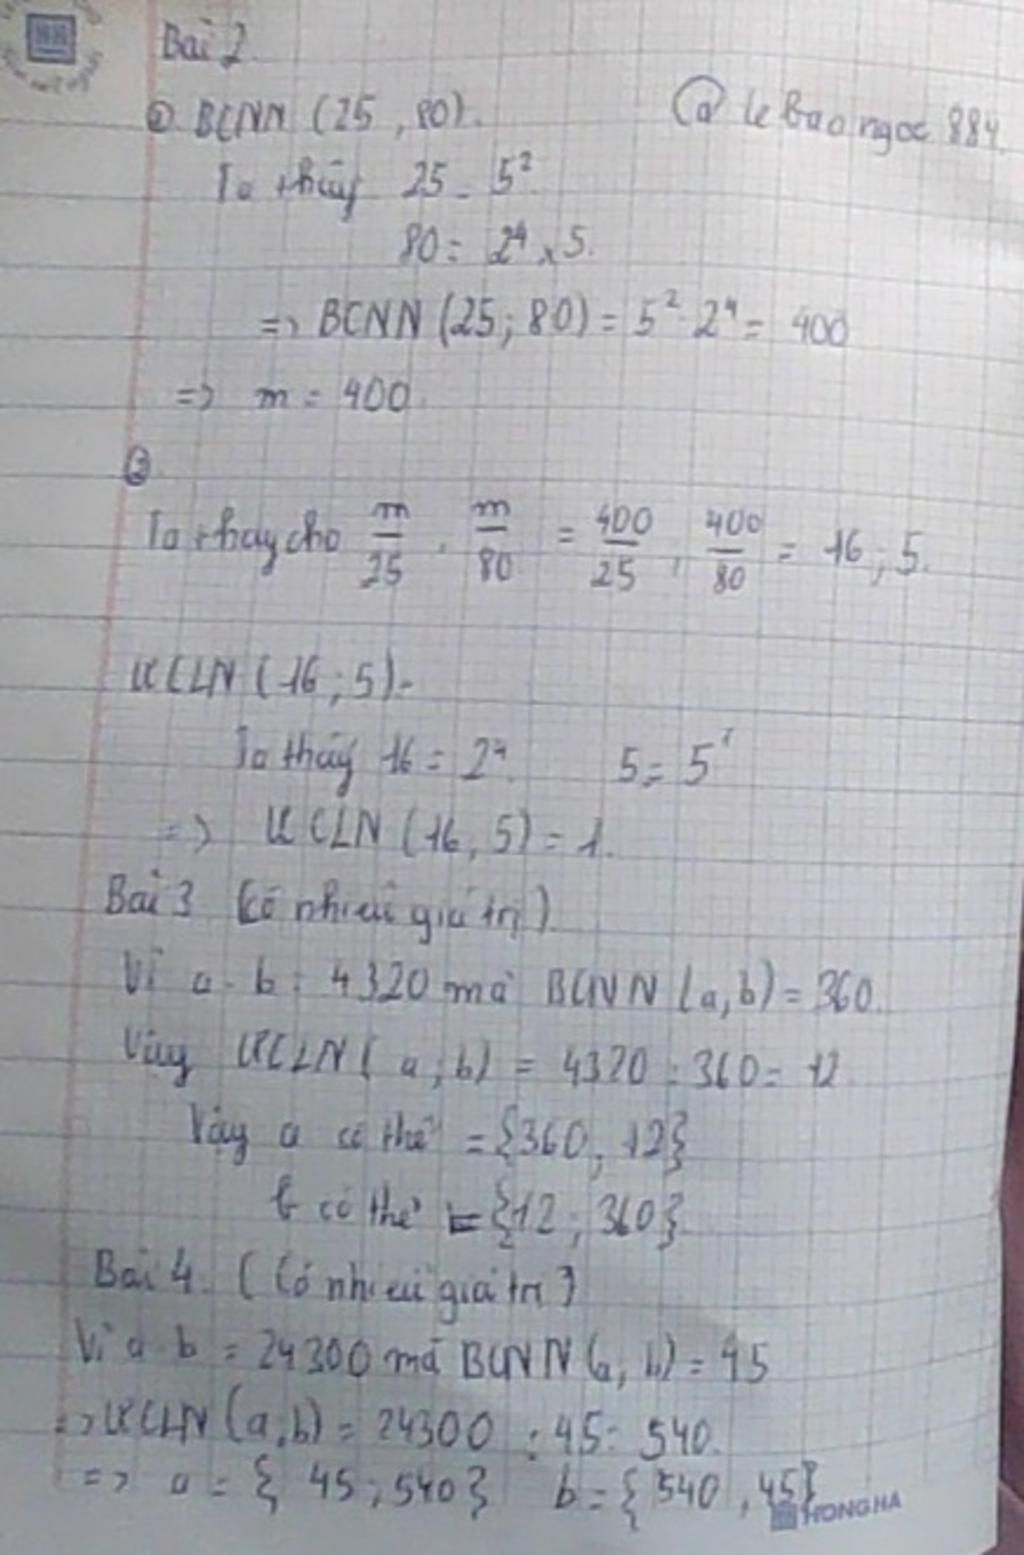 Bài 2
② BCNN (25, 80).
@ le bao ngoc 884
Ta thấy 25 = 5²
80 = 2⁴ x 5.
=> BCNN (25; 80) = 5² . 2⁴ = 400
=> m = 400
③
Ta thay cho m/25 , m/80 = 400/25 , 400/80 = 16 ; 5.
ƯCLN (16 ; 5).
Ta thấy 16 = 2⁴ 5 = 5¹
=> ƯCLN (16, 5) = 1.
Bài 3 (có nhiều giá trị)
Vì a . b = 4320 mà BCNN (a, b) = 360.
Vậy ƯCLN (a ; b) = 4320 : 360 = 12
Vậy a có thể = {360, 12}
b có thể = {12 ; 360}
Bài 4. (Có nhiều giá trị)
Vì a . b = 24300 mà BCNN (a, b) = 45
=> ƯCLN (a, b) = 24300 : 45 = 540.
=> a = { 45 ; 540 } b = { 540 , 45}
HONG HA